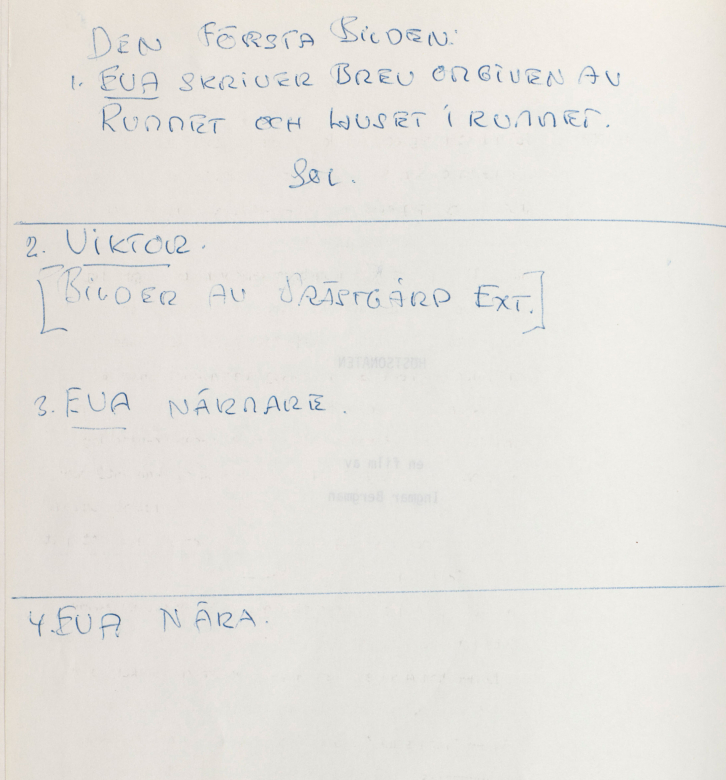 DEN FÖRSTA BILDEN:
1. EVA SKRIVER BREV OMGIVEN AV
RUMMET OCH LJUSET I RUMMET.
SOL.
2. VIKTOR.
[BILDER AV PRÄSTGÅRD EXT.]
HÖSTSONATEN
3. EVA NÄRMARE.
en film av
Ingmar Bergman
4. EVA NÄRA.